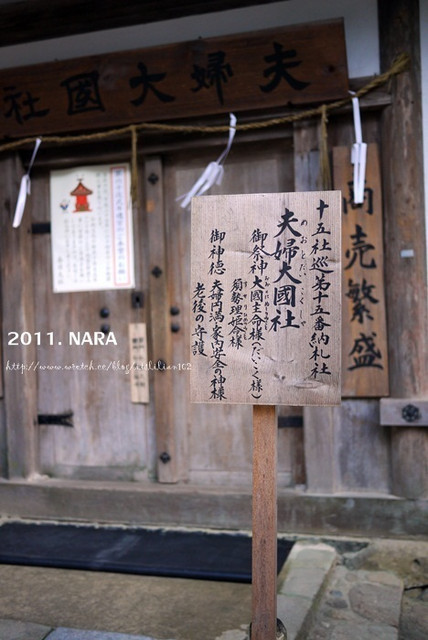 夫婦大國社
十五社巡 第十五番納札社
めおとだいこくしゃ
夫婦大國社
御祭神 大國主命様(だいこく様)
須勢理姫命様
御神徳 夫婦円満、家内安全の神様
老後の守護
商売繁盛
2011. NARA
http://www.wretch.cc/blog/italilian102